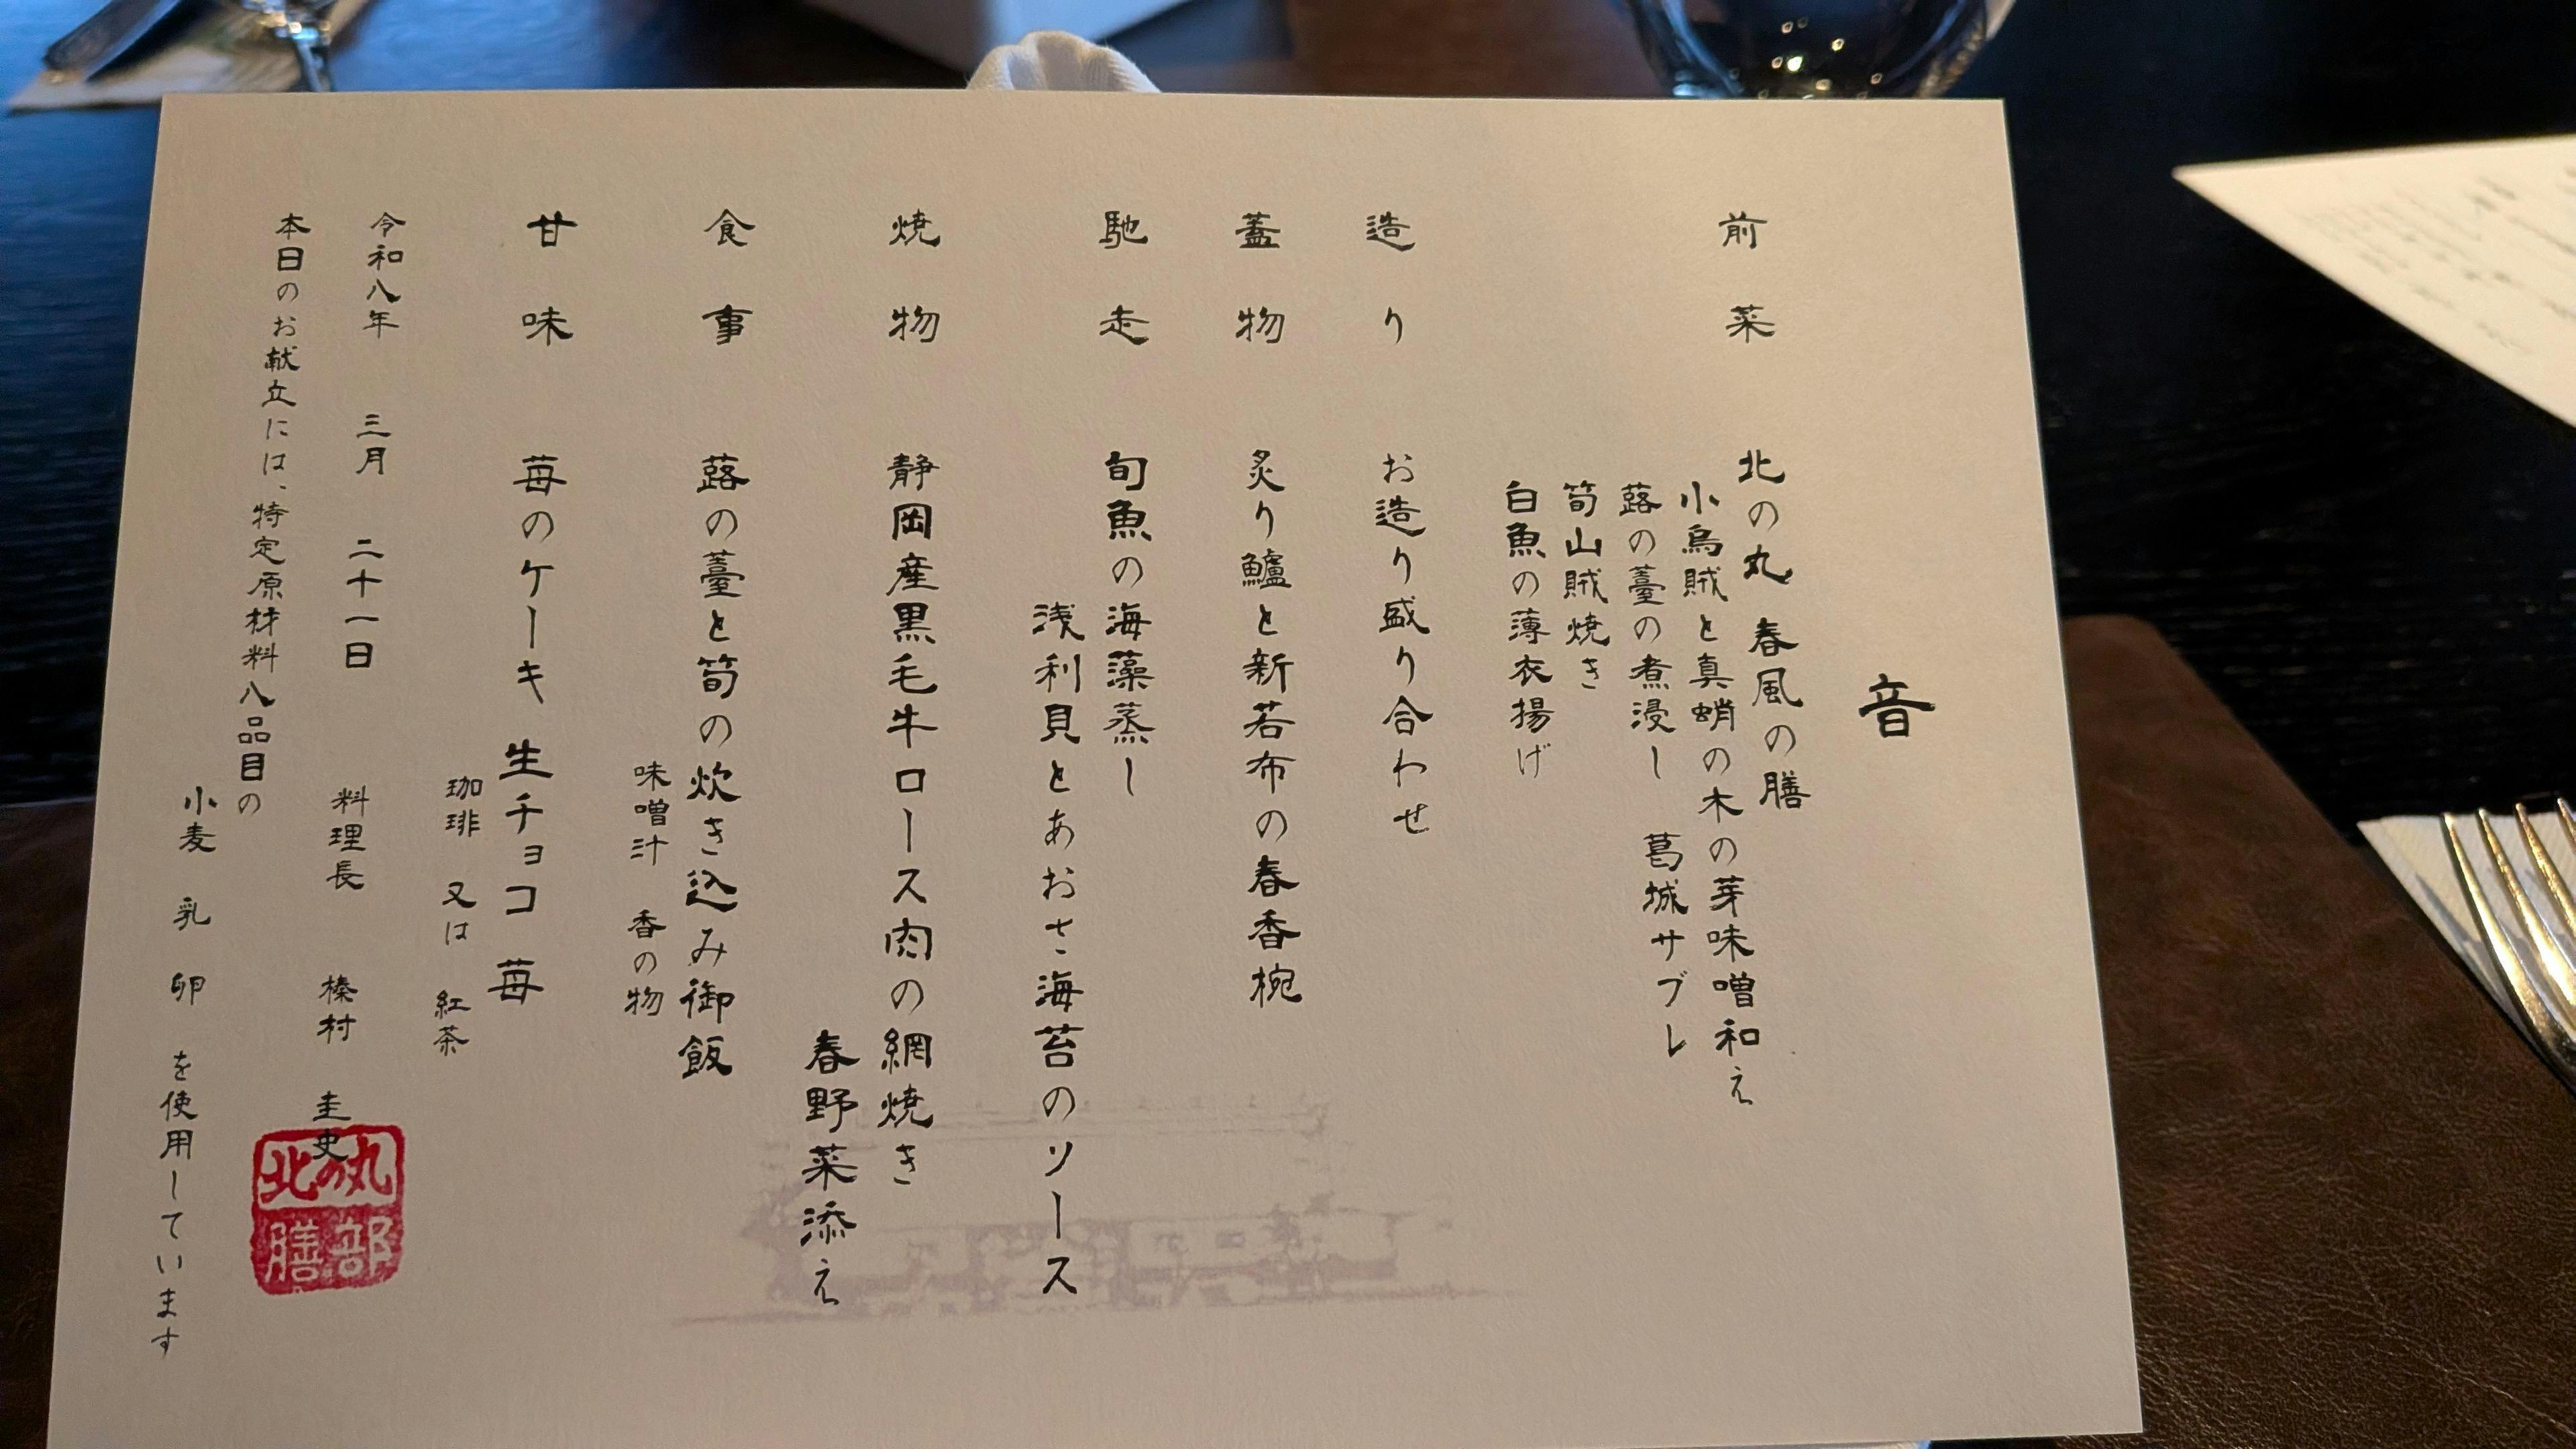 音
前菜
北の丸 春風の膳
小烏賊と真蛸の木の芽味噌和え
蕗の薹の煮浸し 葛城サブレ
筍山賊焼き
白魚の薄衣揚げ
造り
お造り盛り合わせ
蓋物
炙り鱸と新若布の春香椀
馳走
旬魚の海藻蒸し
浅利貝とあおさ海苔のソース
焼物
静岡産黒毛牛ロース肉の網焼き
春野菜添え
食事
蕗の薹と筍の炊き込み御飯
味噌汁 香の物
甘味
苺のケーキ 生チョコ 苺
珈琲 又は 紅茶
令和八年 三月 二十一日
料理長 榛村 圭史
本日のお献立には、特定原材料八品目の
小麦 乳 卵 を使用しています
北の丸
膳部